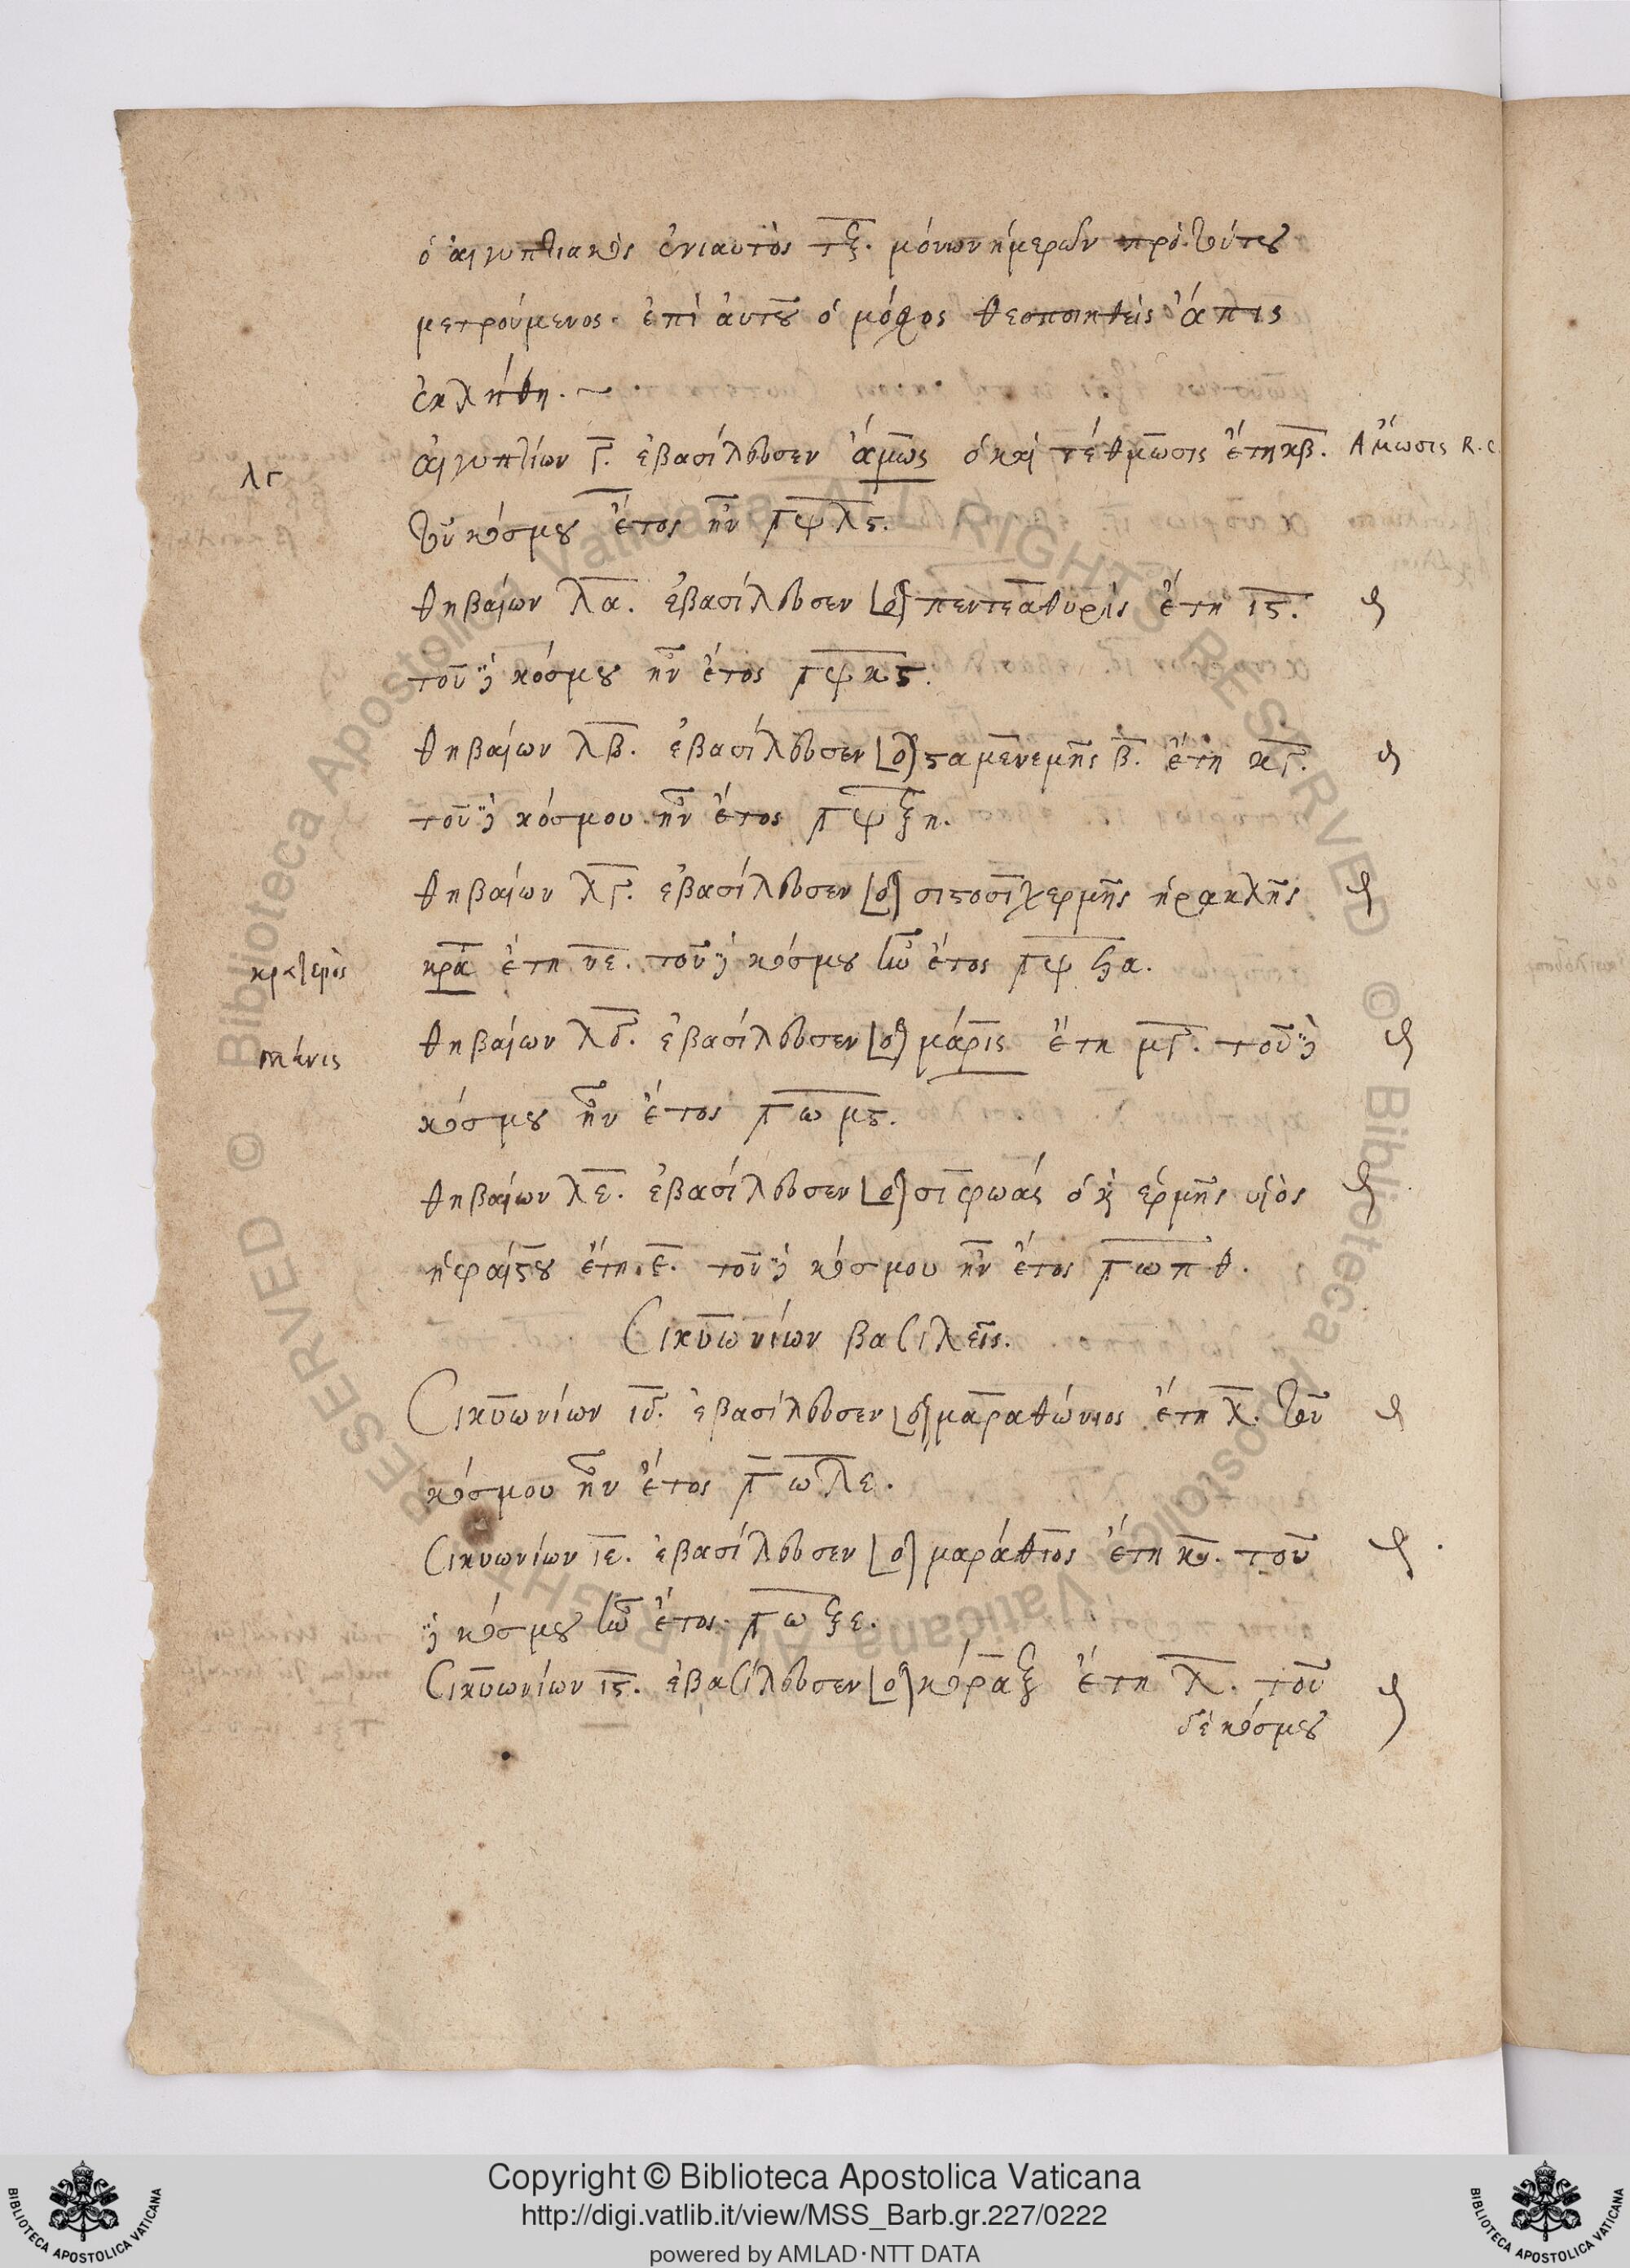 ὁ αἰγυπτιακὸς ἐνιαυτὸς τξ. μόνων ἡμερῶν πρὸ τούτου
μετρούμενος. ἐπὶ αὐτοῦ ὁ μόσχος θεοποιηθεὶς ἄπις
ἐκλήθη. ~
λγ αἰγυπτίων γ. ἐβασίλευσεν ἄμως ὁ καὶ τέθμωσις ἔτη κβ. Ἄμωσις R. C.
τοῦ κόσμου ἔτος ἦν ͵γψλϛ.
θηβαίων λα. ἐβασίλευσεν [ὁ] πεντεαθυρὶς ἔτη ιϛ.
τοῦ δὲ κόσμου ἦν ἔτος ͵γψκϛ.
θηβαίων λβ. ἐβασίλευσεν [ὁ] σταμενεμῆς β. ἔτη κγ.
τοῦ δὲ κόσμου ἦν ἔτος ͵γψξη.
θηβαίων λγ. ἐβασίλευσεν [ὁ] σιστοσιχερμῆς ἡρακλῆς
κραταιὸς κρα ἔτη νε. τοῦ δὲ κόσμου ἦν ἔτος ͵γψϟα.
θηβαίων λδ. ἐβασίλευσεν [ὁ] μάρις ἔτη μγ. τοῦ δὲ
κόσμου ἦν ἔτος ͵γωμϛ.
θηβαίων λε. ἐβασίλευσεν [ὁ] σιφωάς ὁ καὶ ἑρμῆς υἱὸς
ἡφαίστου ἔτη ε. τοῦ δὲ κόσμου ἦν ἔτος ͵γωπθ.
Σικυωνίων βασιλεῖς.
Σικυωνίων ιδ. ἐβασίλευσεν [ὁ] μαραθώνιος ἔτη λ. τοῦ
κόσμου ἦν ἔτος ͵γωλε.
Σικυωνίων ιε. ἐβασίλευσεν [ὁ] μαράθιος ἔτη κ. τοῦ
δὲ κόσμου ἦν ἔτος ͵γωξε.
Σικυωνίων ιϛ. ἐβασίλευσεν [ὁ] κόραξ ἔτη λ. τοῦ
δὲ κόσμου
© Biblioteca Apostolica Vaticana ALL RIGHTS RESERVED
Copyright © Biblioteca Apostolica Vaticana
http://digi.vatlib.it/view/MSS_Barb.gr.227/0222
powered by AMLAD·NTT DATA
BIBLIOTECA APOSTOLICA VATICANA
BIBLIOTECA APOSTOLICA VATICANA